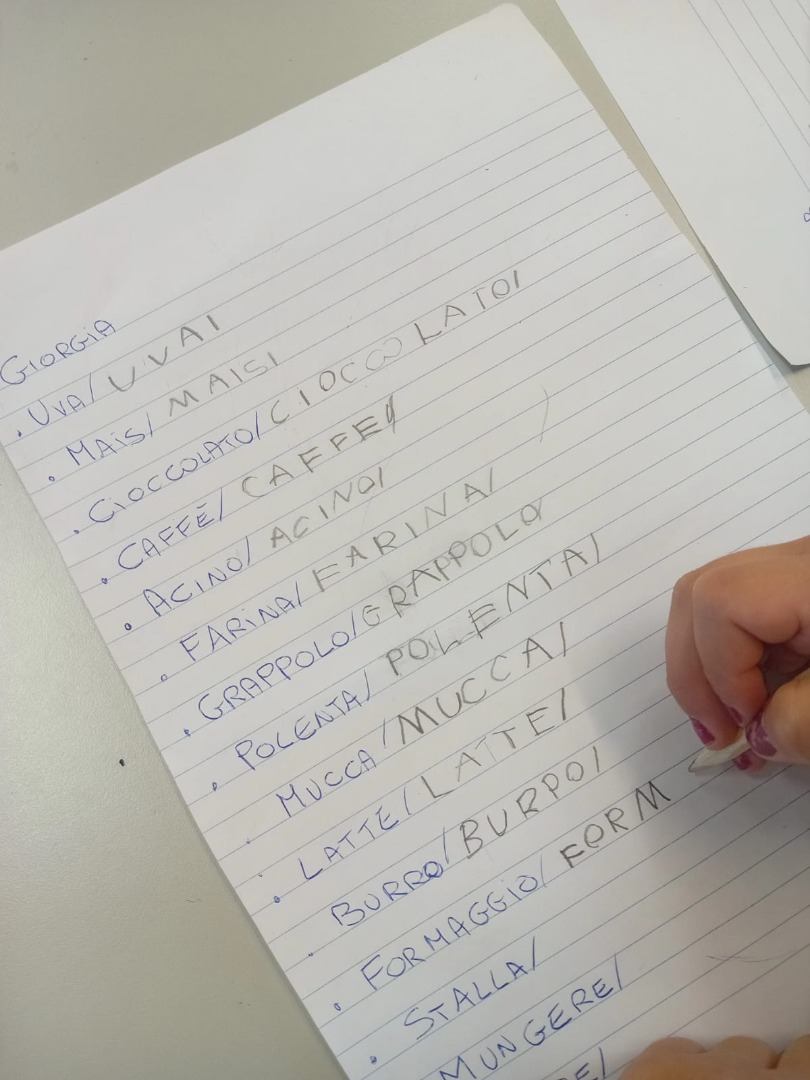 GIORGIA
. UVA/ UVA/
. MAIS/ MAIS/
. CIOCCOLATO/ CIOCCOLATO/
. CAFFÈ/ CAFFE/
. ACINO/ ACINO/
. FARINA/ FARINA/
. GRAPPOLO/ GRAPPOLO/
. POLENTA/ POLENTA/
. MUCCA/ MUCCA/
. LATTE/ LATTE/
. BURRO/ BURPO/
. FORMAGGIO/ FORM
. STALLA/
MUNGERE/